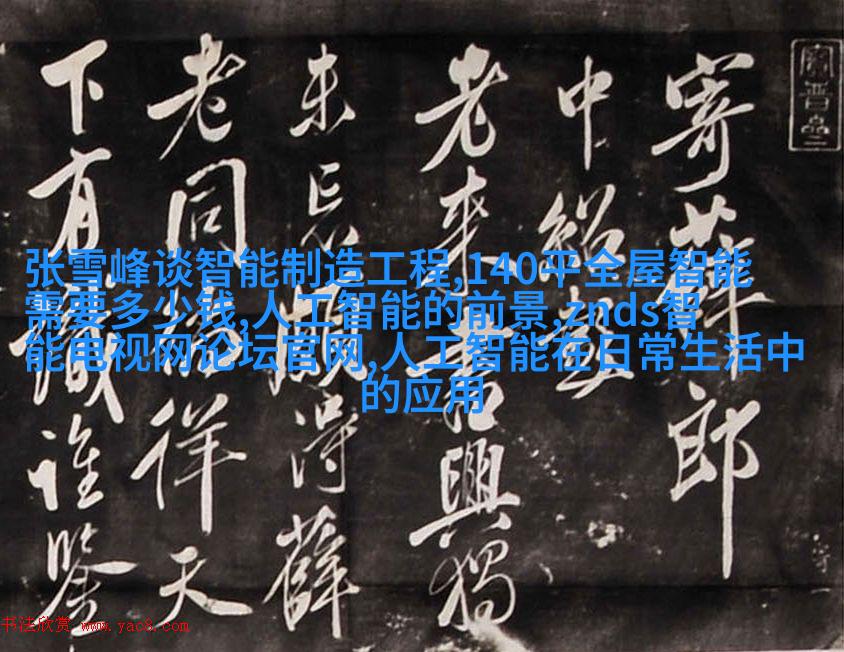 寄薛郎
中紹彭
老來書興獨
未忘頗得薛
老同徜徉天
下有識誰鑒
张雪峰谈智能制造工程,140平全屋智能
需要多少钱,人工智能的前景,znds智
能电视网论坛官网,人工智能在日常生活中
的应用
书法欣赏 www.yac8.com